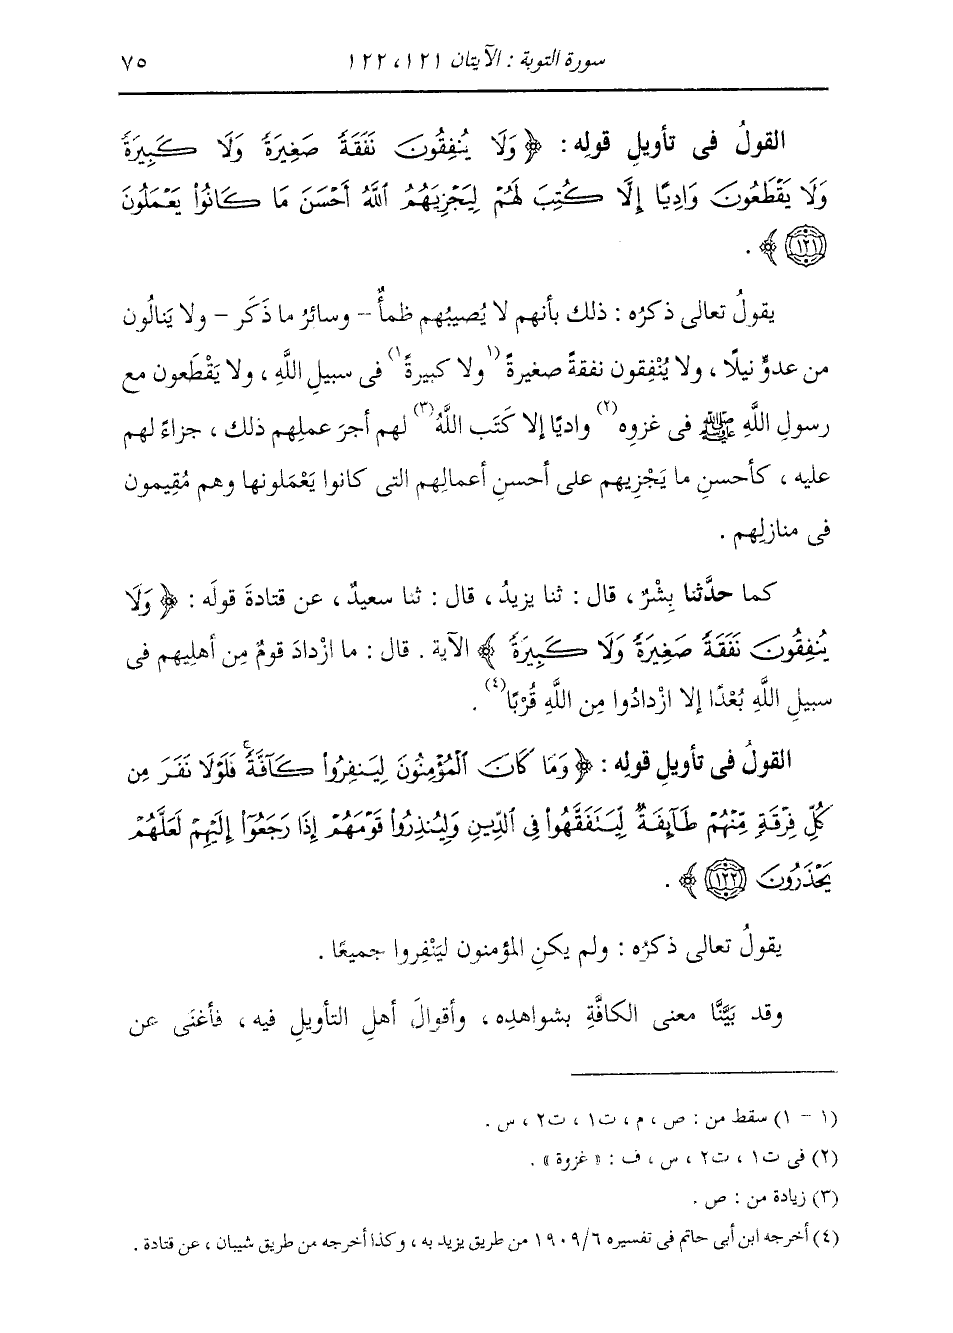 سورة التوبة : الآيتان ١٢١ ، ١٢٢ ٧٥
القولُ فى تأويلِ قولِه : ﴿ وَلَا يُنفِقُونَ نَفَقَةً صَغِيرَةً وَلَا كَبِيرَةً
وَلَا يَقْطَعُونَ وَادِيًا إِلَّا كُتِبَ لَهُمْ لِيَجْزِيَهُمُ اللَّهُ أَحْسَنَ مَا كَانُوا يَعْمَلُونَ
(١٢١) ﴾ .
يقولُ تعالى ذكرُه : ذلك بأنهم لا يُصيبُهم ظمأٌ – وسائرُ ما ذَكَر – ولا يَنالُون
من عدوٍّ نيلًا ، ولا يُنْفِقون نفقةً صغيرةً (١) ولا كبيرةً (١) فى سبيلِ اللَّهِ ، ولا يَقْطَعون مع
رسولِ اللَّهِ ﷺ فى غزوِه (٢) واديًا إلا كَتَب اللَّهُ (٣) لهم أجرَ عملِهم ذلك ، جزاءً لهم
عليه ، كأحسنِ ما يَجْزِيهم على أحسنِ أعمالِهم التى كانوا يَعْمَلونها وهم مُقِيمون
فى منازلِهم .
كما حدَّثنا بِشْرٌ ، قال : ثنا يزيدُ ، قال : ثنا سعيدٌ ، عن قتادةَ قولَه : ﴿ وَلَا
يُنفِقُونَ نَفَقَةً صَغِيرَةً وَلَا كَبِيرَةً ﴾ الآية . قال : ما ازْدادَ قومٌ مِن أهلِيهم فى
سبيلِ اللَّهِ بُعْدًا إلا ازْدادُوا مِن اللَّهِ قُرْبًا (٤) .
القولُ فى تأويلِ قولِه : ﴿ وَمَا كَانَ الْمُؤْمِنُونَ لِيَنفِرُوا كَآفَّةً ۚ فَلَوْلَا نَفَرَ مِن
كُلِّ فِرْقَةٍ مِّنْهُمْ طَآئِفَةٌ لِّيَتَفَقَّهُوا فِى الدِّينِ وَلِيُنذِرُوا قَوْمَهُمْ إِذَا رَجَعُوا إِلَيْهِمْ لَعَلَّهُمْ
يَحْذَرُونَ (١٢٢) ﴾ .
يقولُ تعالى ذكرُه : ولم يكنِ المؤمنون ليَنْفِروا جميعًا .
وقد بَيَّنَّا معنى الكافَّةِ بشواهدِه ، وأقوالَ أهلِ التأويلِ فيه ، فأغنَى عن
(١ – ١) سقط من : ص ، م ، ت١ ، ت٢ ، س .
(٢) فى ت١ ، ت٢ ، س ، ف : « غزوة » .
(٣) زيادة من : ص .
(٤) أخرجه ابن أبى حاتم فى تفسيره ٦/ ١٩٠٩ من طريق يزيد به ، وكذا أخرجه من طريق شيبان ، عن قتادة .